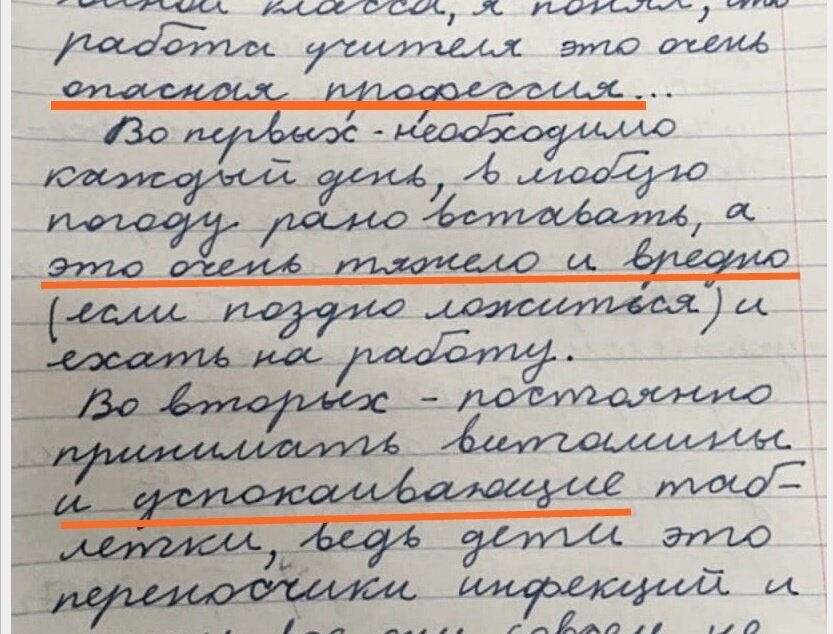 класса, я понял, что
работа учителя это очень
опасная профессия...
Во первых - необходимо
каждый день, в любую
погоду рано вставать, а
это очень тяжело и вредно
(если поздно ложиться) и
ехать на работу.
Во вторых - постоянно
принимать витамины
и успокаивающие таб-
летки, ведь дети это
переносчики инфекций и